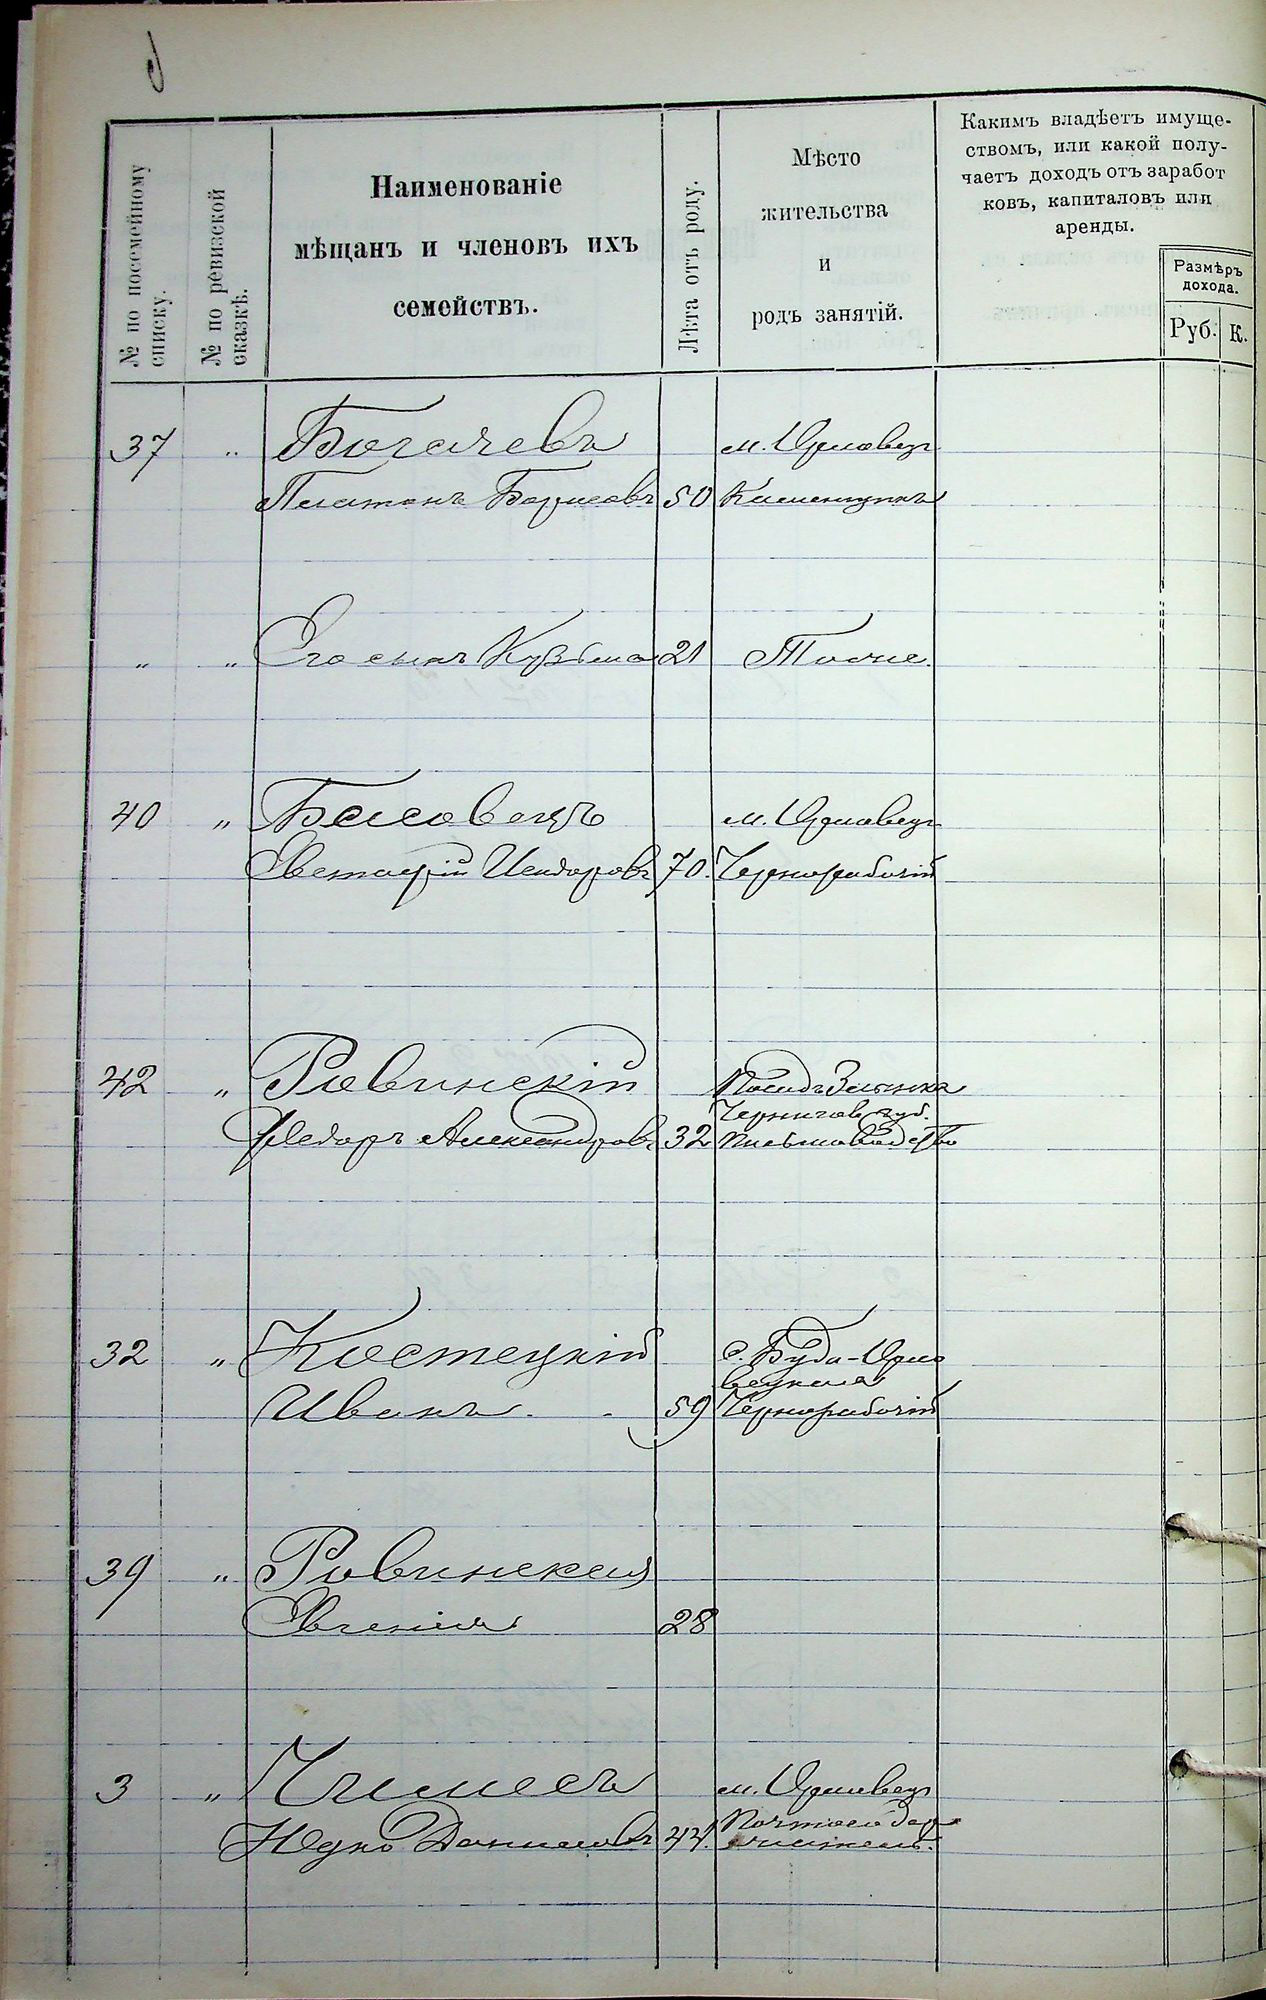 № по посемейному
списку.
№ по ревизской
сказкѣ.
Наименованіе
мѣщанъ и членовъ ихъ
семействъ.
Лѣта отъ роду.
Мѣсто
жительства
и
родъ занятій.
Какимъ владѣетъ имуще-
ствомъ, или какой полу-
чаетъ доходъ отъ заработ
ковъ, капиталовъ или
аренды.
Размѣръ
дохода.
Руб. К.
37 " Богачевъ м. Орловец
Платонъ Борисовъ 50 Каменщикъ
" " Его сынъ Кузьма 21 Тоже.
40 " м. Орловец
Евстафій Исидоровъ 70. Чернорабочій
42 " Ровинскій Посадъ Злынка
Чернигов. губ.
Федоръ Александровъ 32 Письмоводство
32 " Костецкій с. Буда-Орло
вецкая
Иванъ 59 Чернорабочій
39 " Ровинская
Евгенія 28
3 " м. Орловец
Юдко 44.